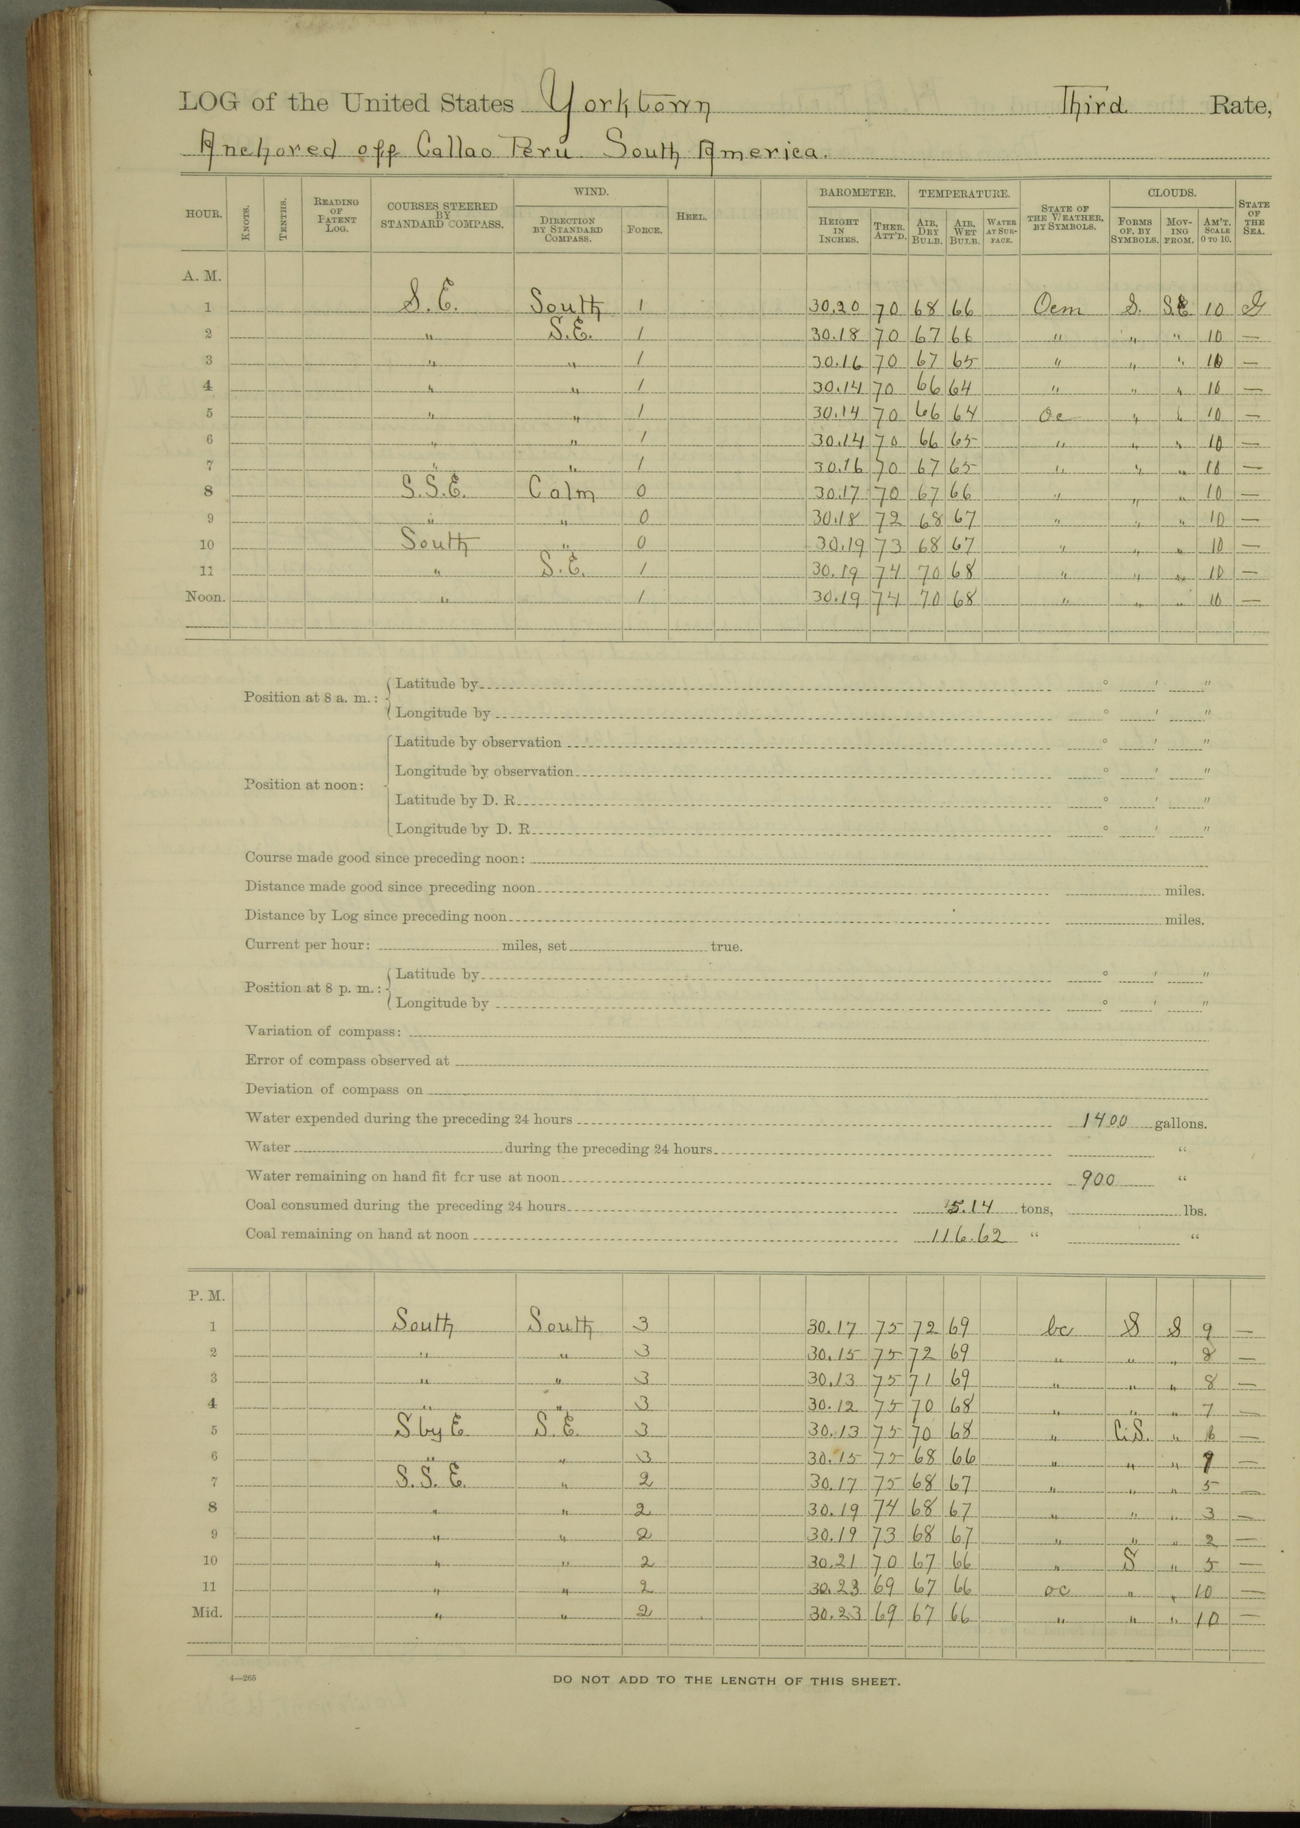 LOG of the United States Yorktown Third Rate,
Anchored off Callao Peru South America.
HOUR. KNOTS. TENTHS. READING OF PATENT LOG. COURSES STEERED BY STANDARD COMPASS. WIND. DIRECTION BY STANDARD COMPASS. FORCE. HEEL. BAROMETER. HEIGHT IN INCHES. THER. ATT'D. TEMPERATURE. AIR, DRY BULB. AIR, WET BULB. WATER AT SURFACE. STATE OF THE WEATHER, BY SYMBOLS. CLOUDS. FORMS OF, BY SYMBOLS. MOVING FROM. AM'T. SCALE 0 TO 10. STATE OF THE SEA.
A. M.
1 S.E. South 1 30.20 70 68 66 Ocm S. S.E. 10
2 " S.E. 1 30.18 70 67 66 " " " 10 —
3 " " 1 30.16 70 67 65 " " " 10 —
4 " " 1 30.14 70 66 64 " " " 10 —
5 " " 1 30.14 70 66 64 Oc " " 10 —
6 " " 1 30.14 70 66 65 " " " 10 —
7 " " 1 30.16 70 67 65 " " " 10 —
8 S.S.E. Calm 0 30.17 70 67 66 " " " 10 —
9 " " 0 30.18 72 68 67 " " " 10 —
10 South " 0 30.19 73 68 67 " " " 10 —
11 " S.E. 1 30.19 74 70 68 " " " 10 —
Noon. " 1 30.19 74 70 68 " " " 10 —
Position at 8 a. m.: Latitude by ° ′ ″
Longitude by ° ′ ″
Position at noon: Latitude by observation ° ′ ″
Longitude by observation ° ′ ″
Latitude by D. R. ° ′ ″
Longitude by D. R. ° ′ ″
Course made good since preceding noon:
Distance made good since preceding noon miles.
Distance by Log since preceding noon miles.
Current per hour: miles, set true.
Position at 8 p. m.: Latitude by ° ′ ″
Longitude by ° ′ ″
Variation of compass:
Error of compass observed at
Deviation of compass on
Water expended during the preceding 24 hours 1400 gallons.
Water during the preceding 24 hours "
Water remaining on hand fit for use at noon 900 "
Coal consumed during the preceding 24 hours 5.14 tons, lbs.
Coal remaining on hand at noon 116.62 " "
P. M.
1 South South 3 30.17 75 72 69 bc S S 9 —
2 " " 3 30.15 75 72 69 " " " 8 —
3 " " 3 30.13 75 71 69 " " " 8 —
4 " " 3 30.12 75 70 68 " " " 7 —
5 S by E S.E. 3 30.13 75 70 68 " Ci.S. " 6 —
6 " " 3 30.15 75 68 66 " " " —
7 S.S.E. " 2 30.17 75 68 67 " " " 5 —
8 " " 2 30.19 74 68 67 " " " 3 —
9 " " 2 30.19 73 68 67 " " " 2 —
10 " " 2 30.21 70 67 66 " S " 5 —
11 " " 2 30.23 69 67 66 oc " " 10 —
Mid. " " 2 30.23 69 67 66 " " " 10 —
4—265 DO NOT ADD TO THE LENGTH OF THIS SHEET.